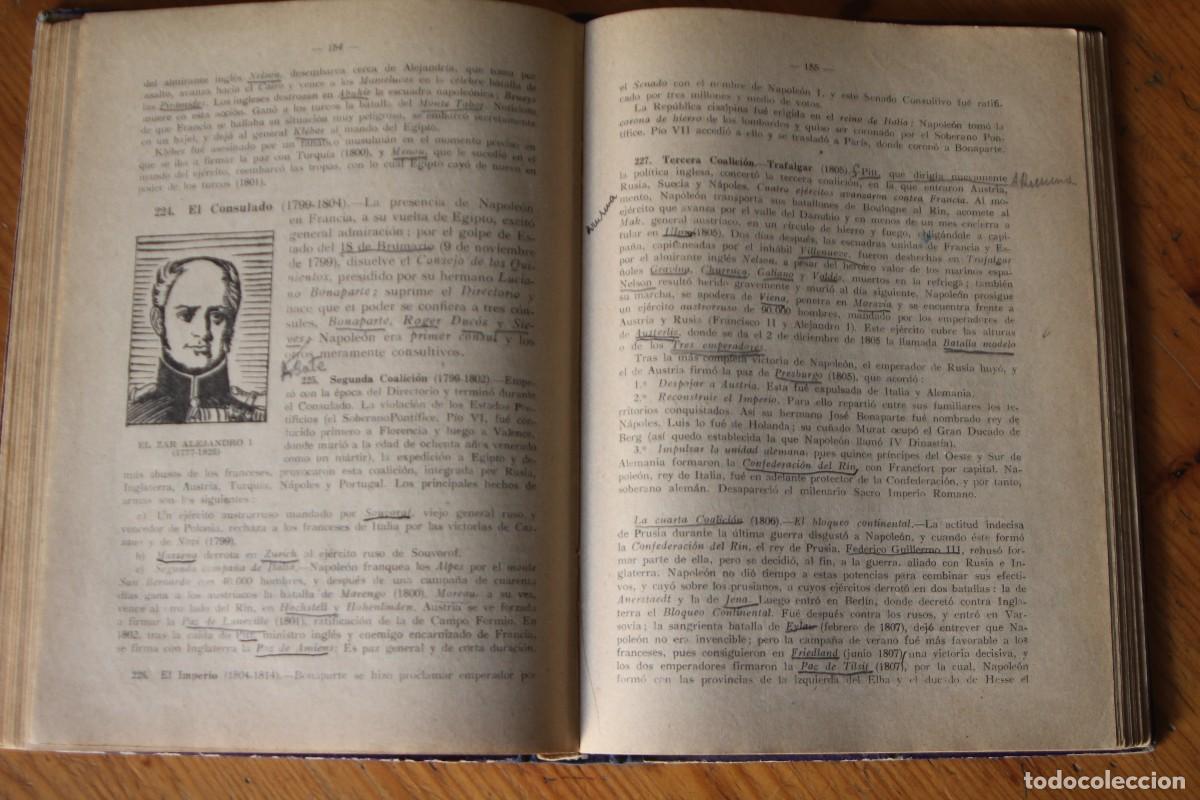 — 184 —
del almirante inglés Nelson, desembarca cerca de Alejandría, que toma por
asalto, avanza hacia el Cairo y vence a los Mamelucos en la célebre batalla de
las Pirámides. Los ingleses destrozan en Abukir la escuadra napoleónica; Brueys
muere en esta acción. Ganó a los turcos la batalla del Monte Tabor. Noticioso
de que Francia se hallaba en situación muy peligrosa, se embarcó secretamente
en un bajel, y dejó al general Kléber al mando del Egipto.
Kléber fué asesinado por un fanático musulmán en el momento preciso en
que se iba a firmar la paz con Turquía (1800), y Menou, que le sucedió en el
mando del ejército, reembarcó las tropas, con lo cual Egipto cayó de nuevo en
poder de los turcos (1801).
224. El Consulado (1799-1804).—La presencia de Napoleón
en Francia, a su vuelta de Egipto, excitó
general admiración; por el golpe de Es-
tado del 18 de Brumario (9 de noviembre
de 1799), disuelve el Consejo de los Qui-
nientos, presidido por su hermano Lucia-
no Bonaparte; suprime el Directorio y
hace que el poder se confiera a tres cón-
sules, Bonaparte, Roger Ducós y Sie-
yes; Napoleón era primer cónsul y los
otros meramente consultivos.
EL ZAR ALEJANDRO I
(1777-1825)
225. Segunda Coalición (1799-1802).—Empe-
zó con la época del Directorio y terminó durante
el Consulado. La violación de los Estados Pon-
tificios (el SoberanoPontífice, Pío VI, fué con-
ducido primero a Florencia y luego a Valence,
donde murió a la edad de ochenta años venerado
como un mártir), la expedición a Egipto y de-
más abusos de los franceses, provocaron esta coalición, integrada por Rusia,
Inglaterra, Austria, Turquía, Nápoles y Portugal. Los principales hechos de
armas son los siguientes:
a) Un ejército austrorruso mandado por Souvorof, viejo general ruso, y
vencedor de Polonia, rechaza a los franceses de Italia por las victorias de Cas-
sano y de Novi (1799).
b) Massena derrota en Zurich al ejército ruso de Souvorof.
c) Segunda campaña de Italia.—Napoleón franquea los Alpes por el monte
San Bernardo con 40.000 hombres, y después de una campaña de cuarenta
días gana a los austriacos la batalla de Marengo (1800). Moreau, a su vez,
vence al otro lado del Rin, en Hochstell y Hohenlinden. Austria se ve forzada
a firmar la Paz de Luneville (1801), ratificación de la de Campo Formio. En
1802, tras la caída de Pitt, ministro inglés y enemigo encarnizado de Francia,
se firma con Inglaterra la Paz de Amiens; Es paz general y de corta duración.
226. El Imperio (1804-1814).—Bonaparte se hizo proclamar emperador por
— 185 —
el Senado con el nombre de Napoleón I, y este Senado Consultivo fué ratifi-
cado por tres millones y medio de votos.
La República cisalpina fué erigida en el reino de Italia; Napoleón tomó la
corona de hierro de los lombardos y quiso ser coronado por el Soberano Pon-
tífice. Pío VII accedió a ello y se trasladó a París, donde coronó a Bonaparte.
227. Tercera Coalición.—Trafalgar (1805).—Pitt, que dirigía nuevamente
la política inglesa, concertó la tercera coalición, en la que entraron Austria,
Rusia, Suecia y Nápoles. Cuatro ejércitos avanzaron contra Francia. Al mo-
mento, Napoleón transporta sus batallones de Boulogne al Rin, acomete al
ejército que avanza por el valle del Danubio y en menos de un mes encierra a
Mak, general austríaco, en un círculo de hierro y fuego, obligándole a capi-
tular en Ulm (1805). Dos días después, las escuadras unidas de Francia y Es-
paña, capitaneadas por el inhábil Villeneuve, fueron deshechas en Trafalgar
por el almirante inglés Nelson, a pesar del heroico valor de los marinos espa-
ñoles Gravina, Churruca, Galiano y Valdés, muertos en la refriega; también
Nelson resultó herido gravemente y murió al día siguiente. Napoleón prosigue
su marcha, se apodera de Viena, penetra en Moravia y se encuentra frente a
un ejército austrorruso de 90.000 hombres, mandado por los emperadores de
Austria y Rusia (Francisco II y Alejandro I). Este ejército cubre las alturas
de Austerliz, donde se da el 2 de diciembre de 1805 la llamada Batalla modelo
o de los Tres emperadores.
Tras la más completa victoria de Napoleón, el emperador de Rusia huyó, y
el de Austria firmó la paz de Presburgo (1805), que acordó:
1.º Despojar a Austria. Esta fué expulsada de Italia y Alemania.
2.º Reconstruir el Imperio. Para ello repartió entre sus familiares los te-
rritorios conquistados. Así su hermano José Bonaparte fué nombrado rey de
Nápoles, Luis lo fué de Holanda; su cuñado Murat ocupó el Gran Ducado de
Berg (así quedo establecida la que Napoleón llamó IV Dinastía).
3.º Impulsar la unidad alemana: pues quince príncipes del Oeste y Sur de
Alemania formaron la Confederación del Rin, con Francfort por capital. Na-
poleón, rey de Italia, fué en adelante protector de la Confederación, y por tanto,
soberano alemán. Desapareció el milenario Sacro Imperio Romano.
La cuarta Coalición (1806).—El bloqueo continental.—La actitud indecisa
de Prusia durante la última guerra disgustó a Napoleón, y cuando éste formó
la Confederación del Rin, el rey de Prusia, Federico Guillermo III, rehusó for-
mar parte de ella, pero se decidió, al fin, a la guerra, aliado con Rusia e In-
glaterra. Napoleón no dió tiempo a estas potencias para combinar sus efecti-
vos, y cayó sobre los prusianos, a cuyos ejércitos derrotó en dos batallas: la de
Auerstaedt y la de Jena. Luego entró en Berlín, donde decretó contra Ingla-
terra el Bloqueo Continental. Fué después contra los rusos, y entró en Var-
sovia; la sangrienta batalla de Eylau (febrero de 1807), dejó entrever que Na-
poleón no era invencible; pero la campaña de verano fué más favorable a los
franceses, pues consiguieron en Friedland (junio 1807) una victoria decisiva, y
los dos emperadores firmaron la Paz de Tilsit (1807), por la cual, Napoleón
formó con las provincias de la izquierda del Elba y el ducado de Hesse el
todocoleccion